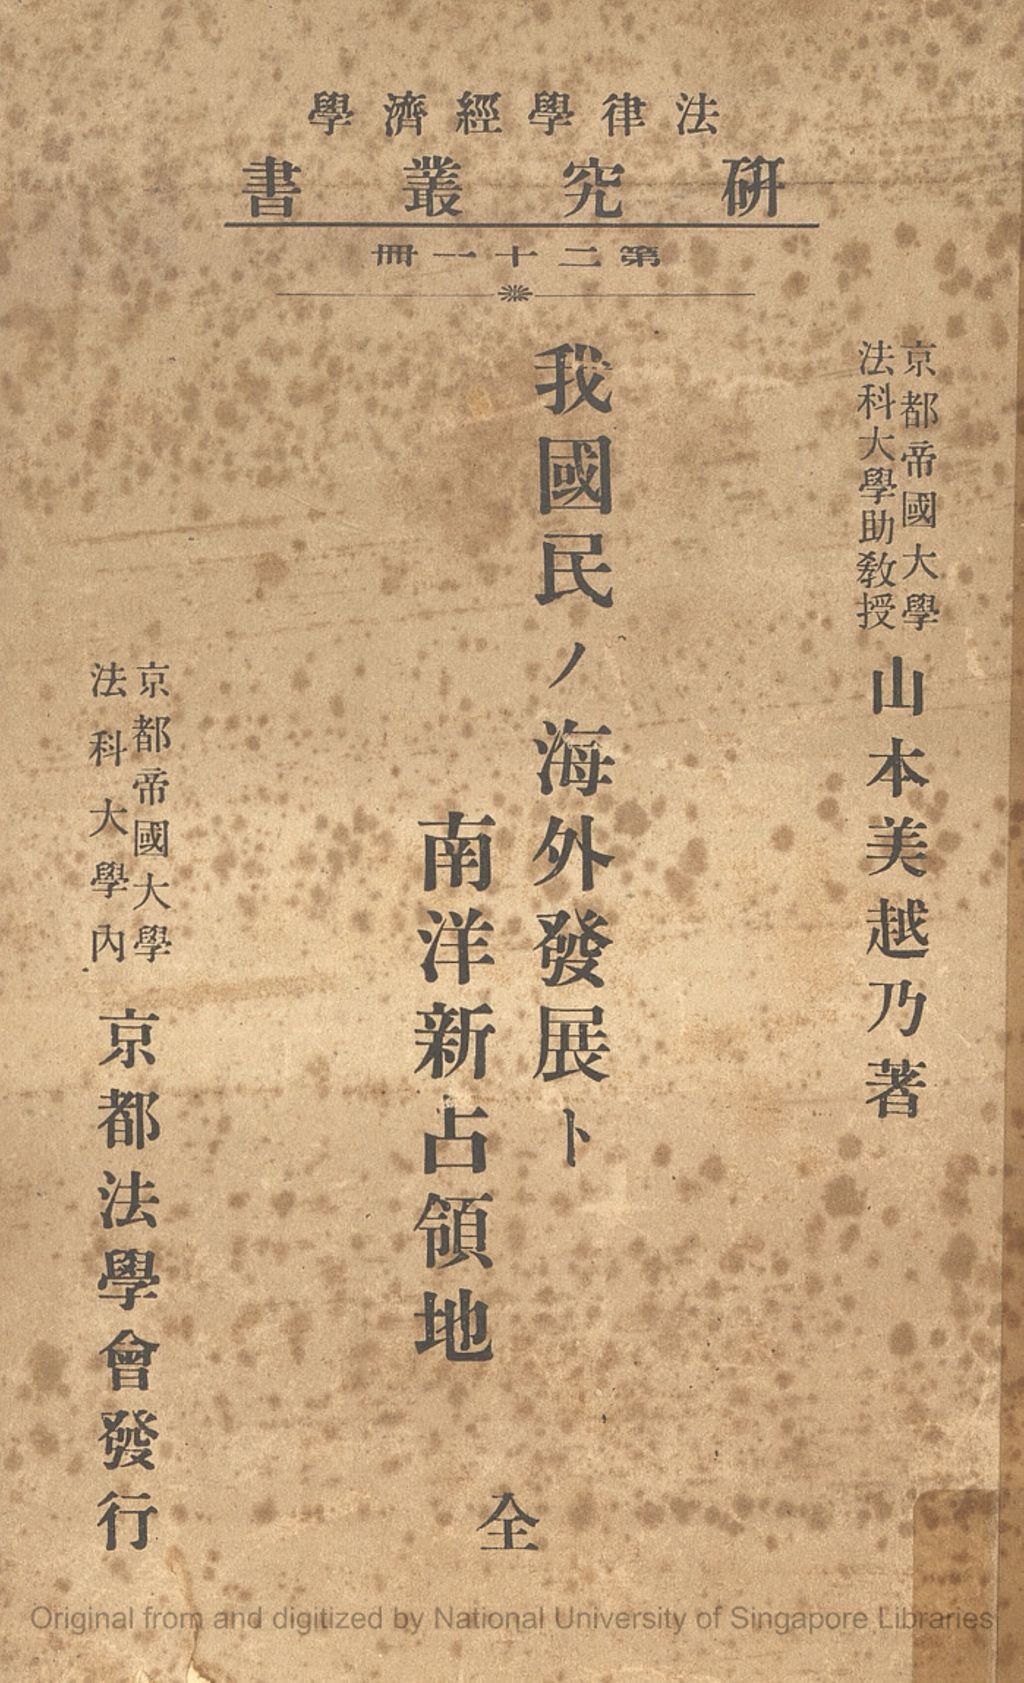 法律學經濟學
研究叢書
第二十一冊
京都帝國大學
法科大學助教授
山本美越乃著
我國民ノ海外發展ト
南洋新占領地
全
京都帝國大學
法科大學內
京都法學會發行
Original from and digitized by National University of Singapore Libraries